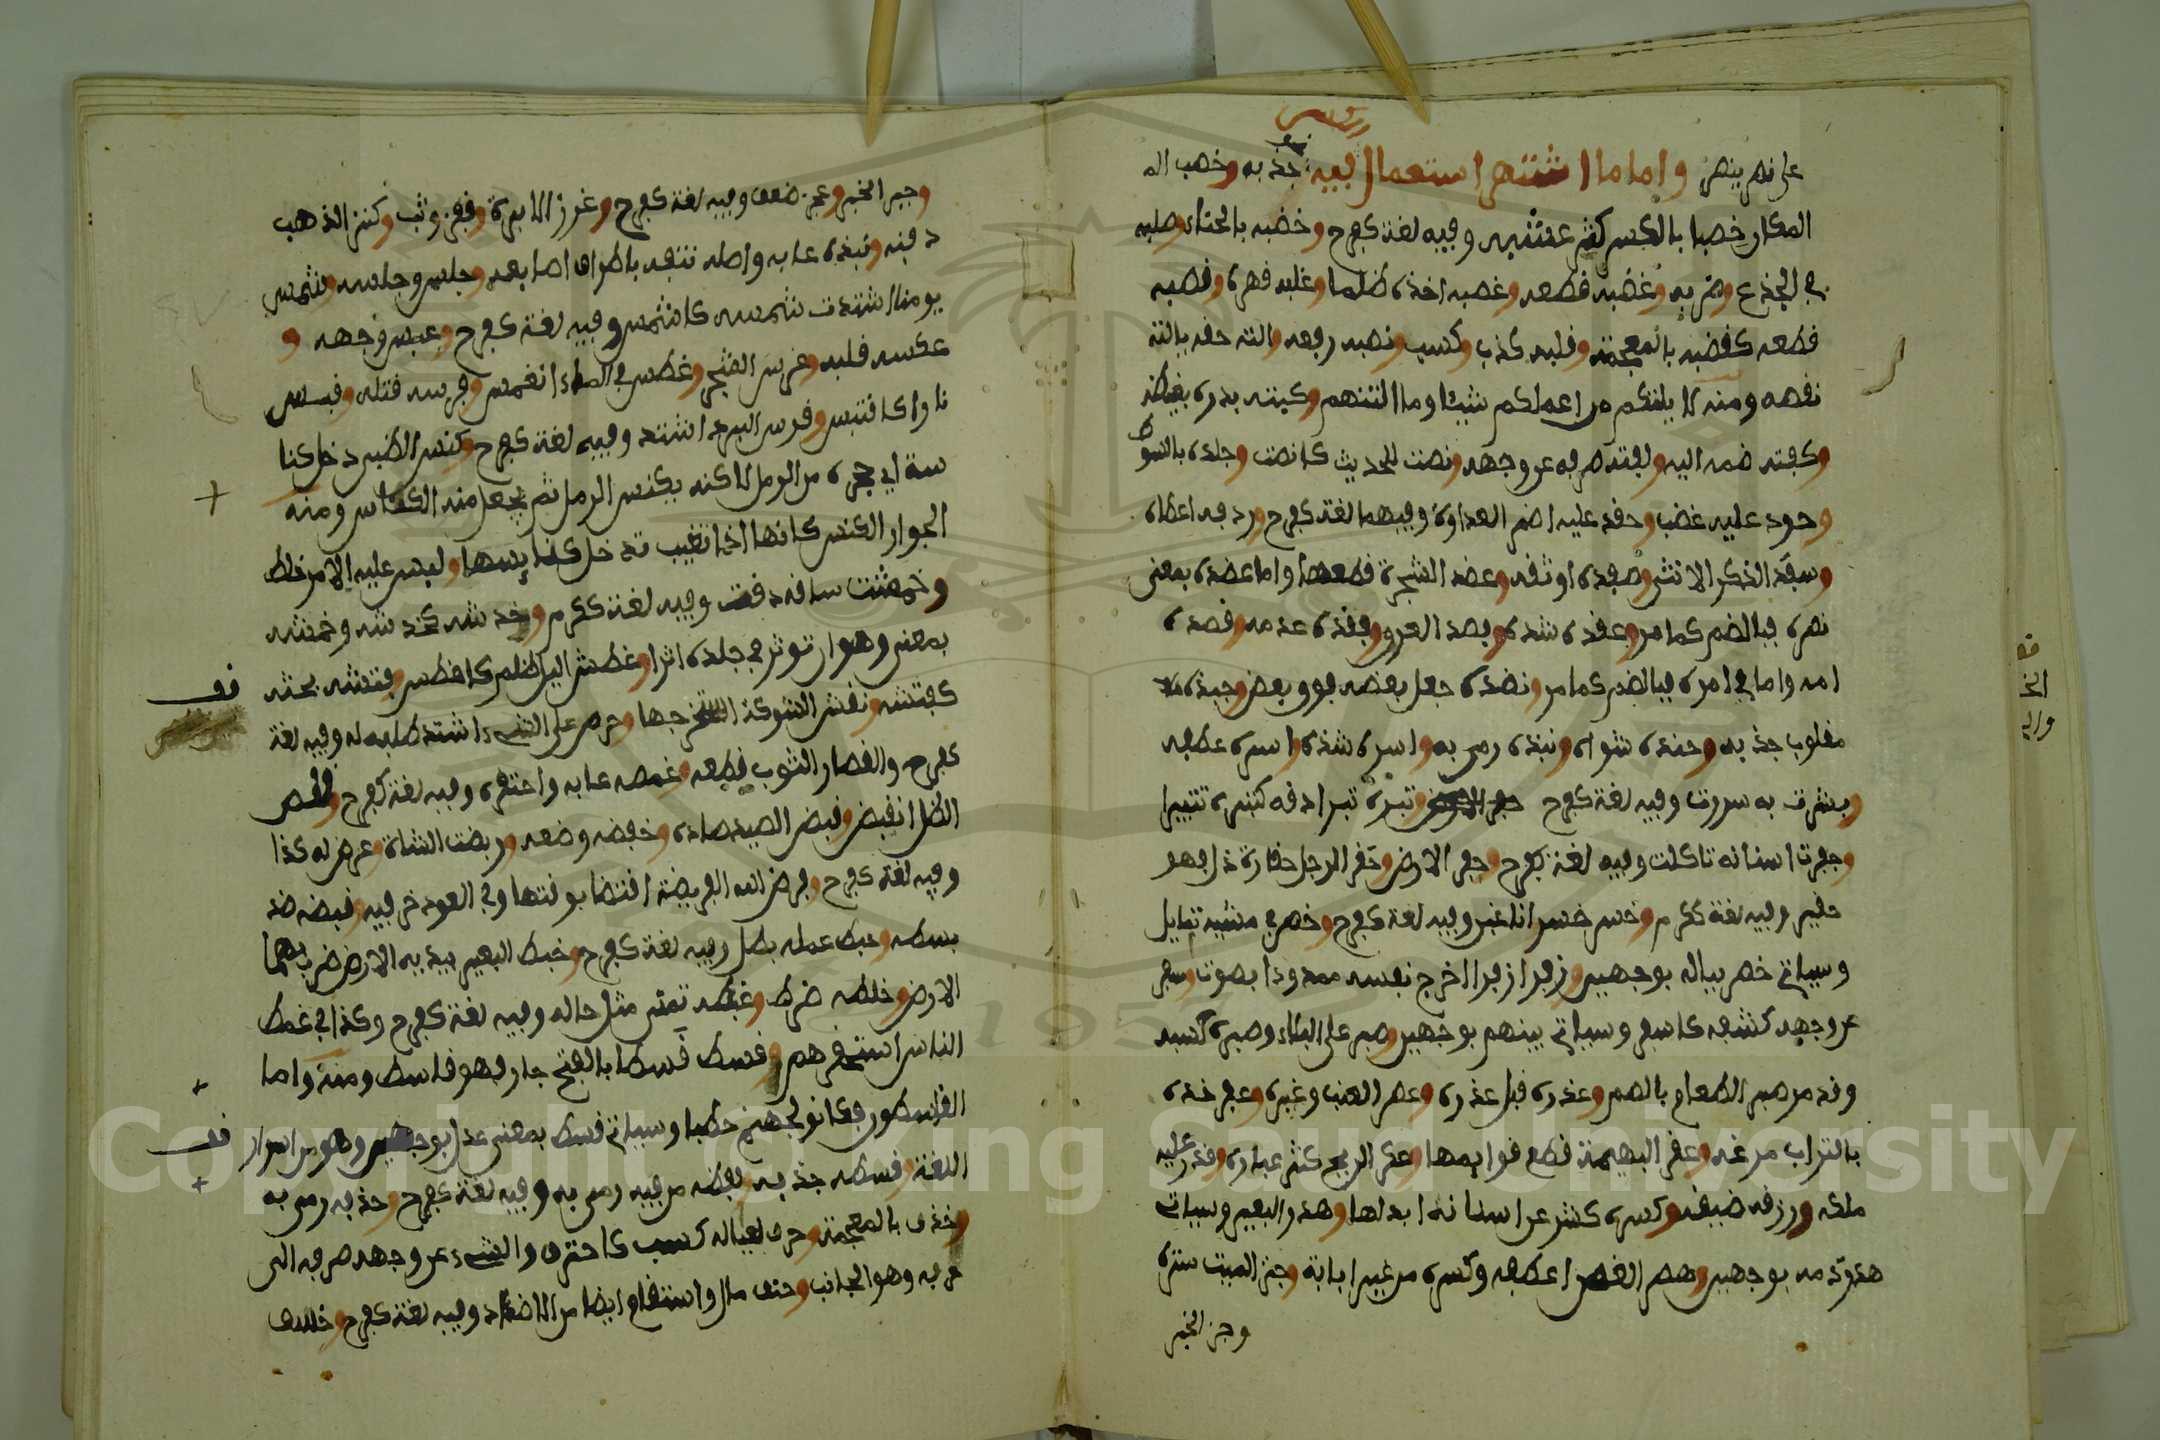 على نصر ينصر واما ما اشتهر استعمال فيه جذبه وخصب الم
المكان خصبا بالكسر كثر عشبه وفيه لغة كفرح وخضبه بالحناء وصلبه
في الجذع وضربه وغضبه قطعه وغصبه اخذه ظلما وغلبه قهره وقصبه
قطعه كقضبه بالمعجمة وقلبه كذب وكسب ونصبه رفعه والته حقه يالته
نقصه ومنه لا يلتكم من اعملكم شيئا وما التنهم وكبته بدره بغيظه
وكفته ضمه اليه ولفته صرفه عن وجهه ونصت للحديث كانصت وجلده بالسوط
وحرد عليه غضب وحقد عليه اضمر العداوة وفيهما لغة كفرح ورفده اعطاه
وسفد الذكر الانثى وصفده اوثقه وعضد الشجرة قطعها واما عضده بمعنى
نصره فبالضم كما مر وعقده شده وفصد العرق وفقده عدمه وقصده
امه واما في امره فبالضم كما مر ونضده جعل بعضه فوق بعض وجبذه
مقلوب جذبه وحنذه شواه ونبذه رمى به واسره شده واسره عطفه
وبشرت به سررت وفيه لغة كفرح وتبره تبرا دقه كتبره تتبيرا
وحفرت اسنانه تاكلت وفيه لغة كفرح وحفر الارض وحقر الرجل حقارة ذل فهو
حقير وفيه لغة ككرم وخسر خسرانا غبن وفيه لغة كفرح وخطر في مشيه تمايل
وسياتي خطر بباله بوجهين وزفر زفرا اخرج نفسه ممدودا بصوت وسفر
عن وجهه كشفه كاسفر وسياتي بينهم بوجهين وصبر على البلاء وصبره كسبه
وقد مر صبر الطعام بالضم وعذره قبل عذره وعصر العنب وغيره وعفر خده
بالتراب مرغه وعقر البهيمة قطع قوايمها وعكر الريح كثر غباره وقدر عليه
ملكه ورزقه ضيقه وكسره كشر عن اسنانه ابداها وهدر البعير وسياتي
هدر دمه بوجهين وهصر الغصن اعطفه وكسره من غير ابانة وجنز الميت ستره
وجز الخبر
وخبز الخبز وعجز ضعف وفيه لغة كفرح وغرز الابرة وقفز وثب وكنز الذهب
دفنه ونبذه عابه واصله نتفه باطراف اصابعه وجلس وجلسه وشمس
يومنا اشتدت شمسه كاشمس وفيه لغة كفرح وعبس وجهه و
عكسه قلبه وغرس الشجر وغطس في الماء انغمس وفرسه قتله وقبس
نارا كاقتبس وقرس البرد اشتد وفيه لغة كفرح وكنس الظبي دخل كنا
سه اي جحره من الرمل لانه يكنس الرمل ثم يجعل منه الكناس ومنه
الجوار الكنس كانها اذا تغيب تدخل كناسها ولبس عليه الامر خلط
وخمشت ساقه دقت وفيه لغة ككرم وخدشه كخدشه وخمشه
بمعنى وهو ان توثر في جلده اثرا وغطش اليل اظلم كاغطش وفتشه بحثه
كفتشه ونقش الشوكة استخرجها وحرص على الشيء اشتد طلبه له وفيه لغة
كفرح والقصار الثوب قطعه وغمصه عابه واحتقره وفيه لغة كفرح وقلص
قف
الظل انقبض وقبض الصيد صاده وخفضه وضعه وربضت الشاة وعرض له كذا
وفيه لغة كفرح وفرض الله الفريضة اقتضا بوقتها وفي العود خز فيه وقبضه ضد
بسطه وحبط عمله بطل وفيه لغة كفرح وخبط البعير بيديه الارض ضرب بهما
الارض وخلطه ضرط وغبطه تمنى مثل حاله وفيه لغة كفرح وكذا في غمط
الناس استحقرهم وقسط قسطا بالفتح جار فهو قاسط ومنه واما
القاسطون فكانوا لجهنم حطبا وسياتي قسط بمعنى عدل بوجهين وهو من اسرار
قف
اللغة وقسطه جذبه ولفظه من فيه رمى به وفيه لغة كفرح وحذفه رمى به
وخذف بالمعجمة وحرف لعياله كسب كاحترف والشيء عن وجهه صرفه الى
حرفه وهو الجانب وحنف مال واستقام ايضا من الاضداد وفيه لغة كفرح وخلف